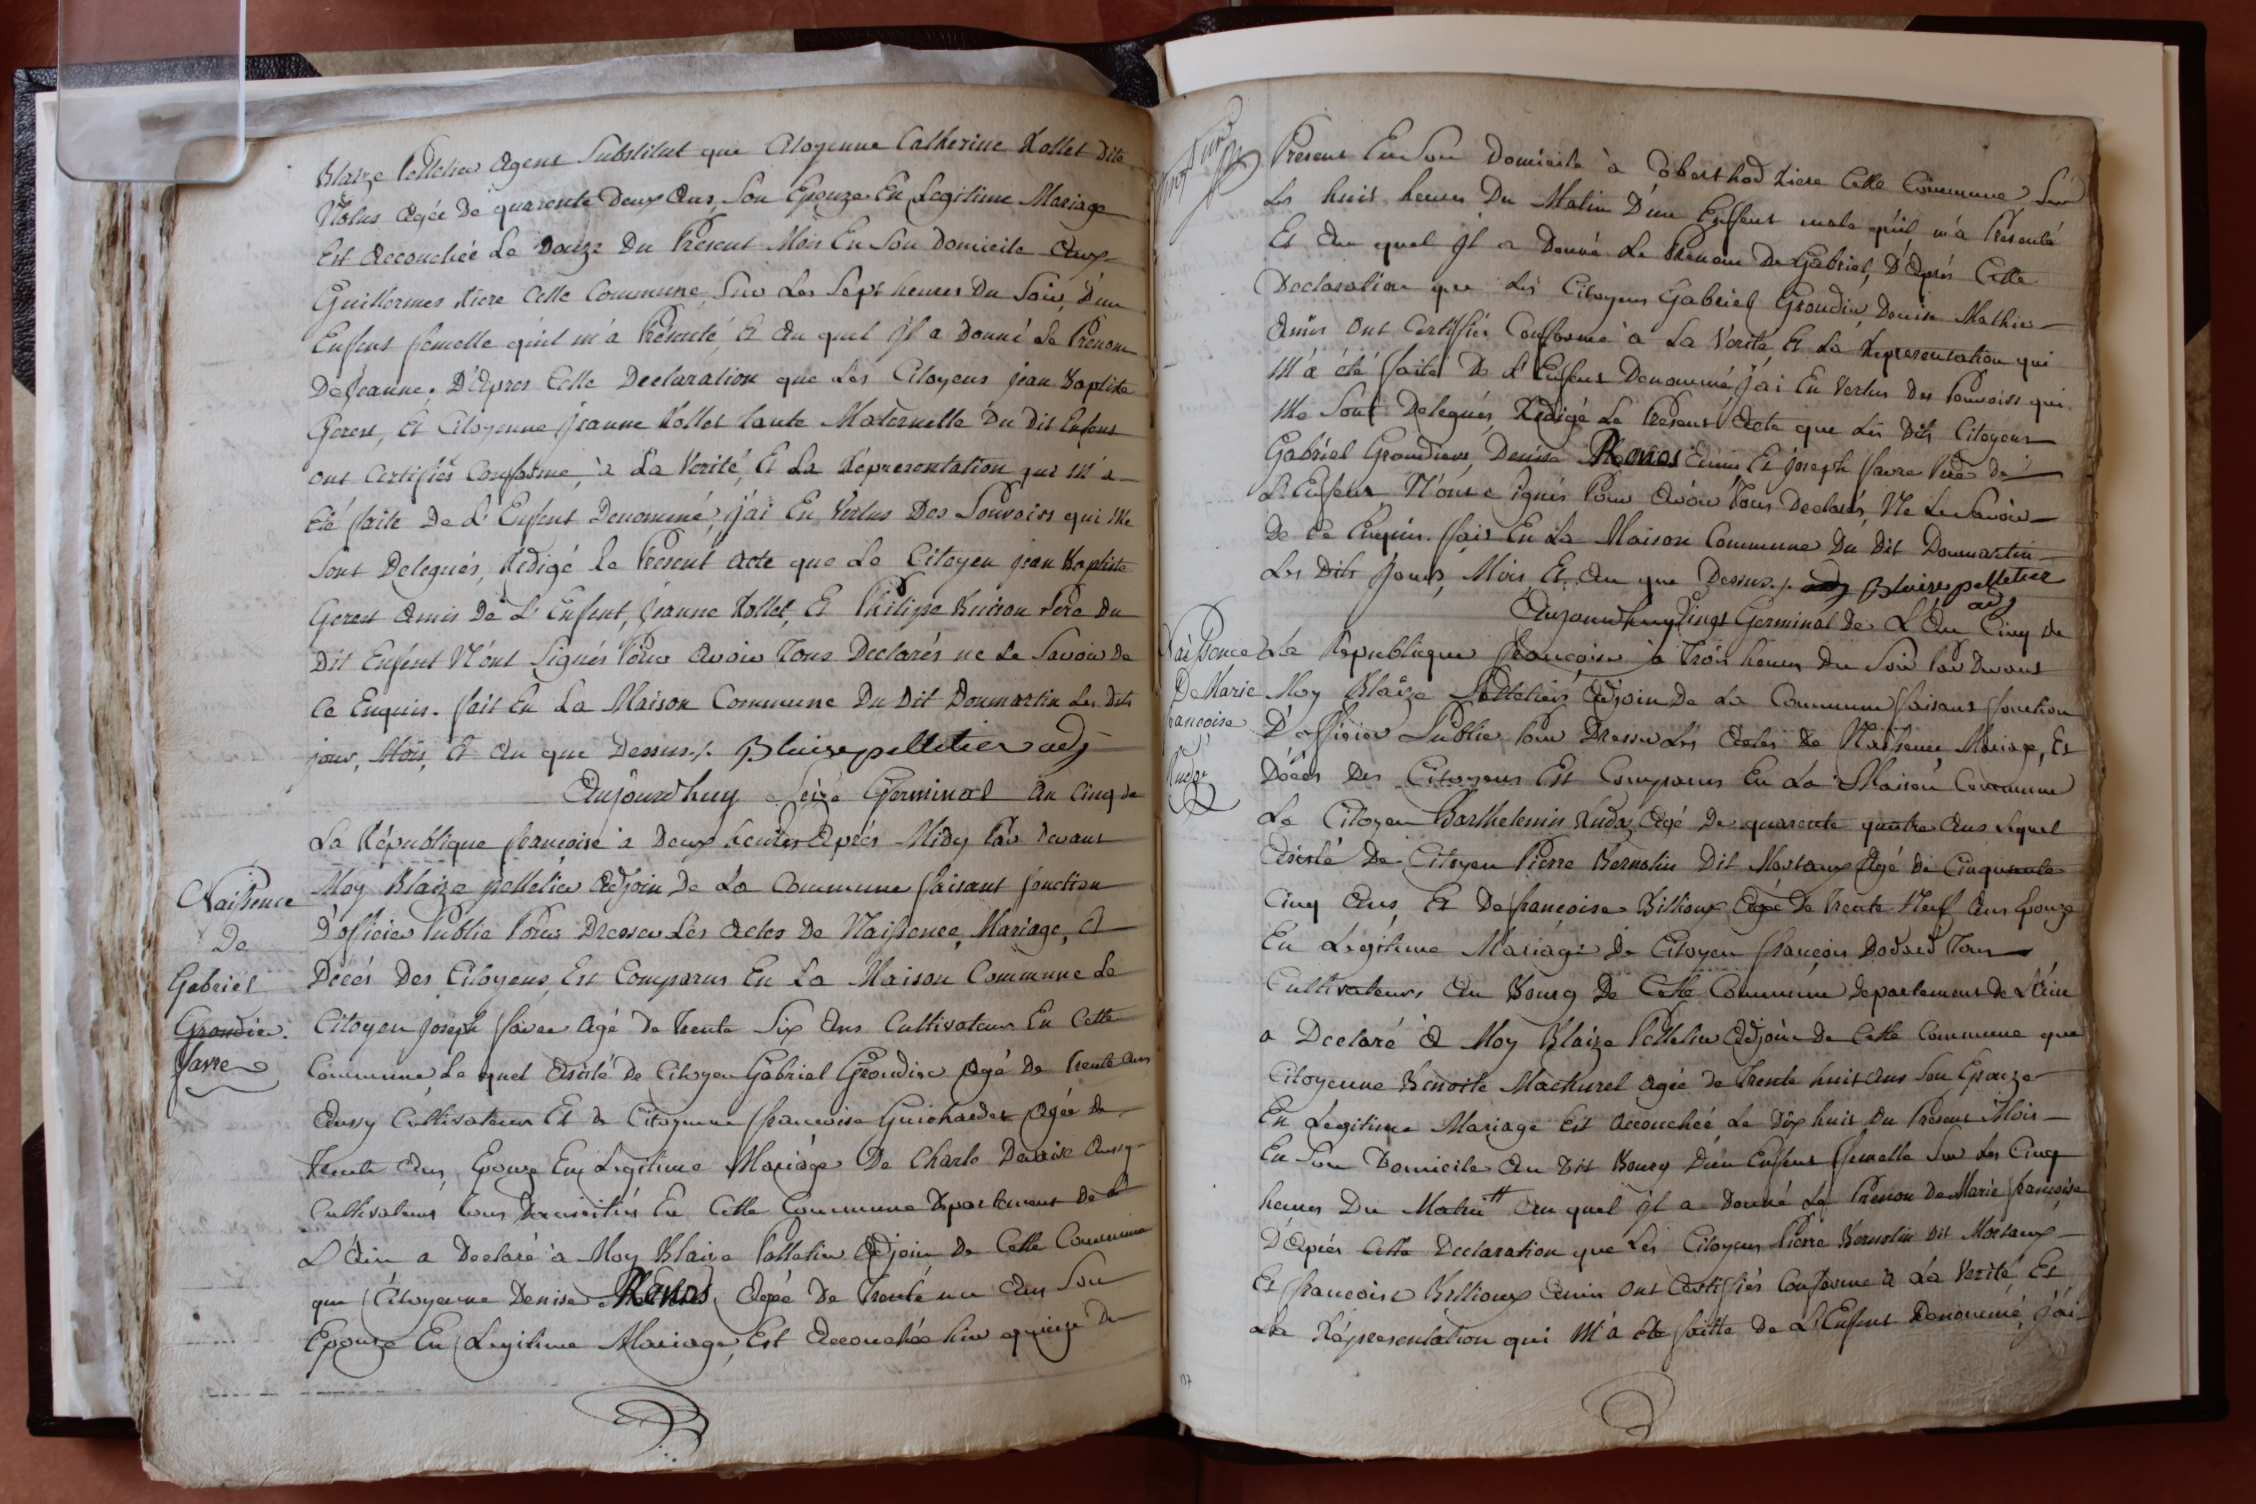 Blaize Pelletier Agent Substitut que Citoyenne Catherine Rollet dite
Nolus Agée de quarente Deux Ans, Son Epouze En Legitime Mariage
Est Accouchée Le Douze Du Présent Mois En Son Domicile Aux
Guillermes Riere Cette Commune Sur Les Sept heures Du Soir, D'un
Enfent femelle qu'il m'a Présenté, Et Au quel Il a Donné Le Prénom
De Jeanne. D'Apres Cette Declaration que Les Citoyens jean Baptiste
Gerent, Et Citoyenne Jeanne Rollet tante Maternelle Du Dit Enfent
ont Certifiés Conforme, à La Verité, Et La Répresentation qui M'a
Eté faite De L'Enfent Denommé, j'ai En Vertus Des Pouvoirs qui Me
Sont Delegués, Rédigé Le Présent Acte que Le Citoyen jean Baptiste
Gerent Amis De L'Enfent, Jeanne Rollet, Et Philippe Buison Père Du
Dit Enfent N'ont Signés Pour Avoir Tous Declarés ne Le Savoir De
Ce Enquis. fait En La Maison Commune Du Dit Domartin Les Dits
jour, Mois, Et An que Dessus ./. Blaise pelletier adj
Aujourd'huy Seize Germinal An Cinq de
La République françoise à Deux heures Après Midy Par Devant
Moy Blaize pelletier Adjoin De La Commune faisant fonction
D'officier Public Pour Dresser Les Actes De Naissence, Mariage, Et
Décés Des Citoyens, Est Comparus En La Maison Commune Le
Citoyen Joseph favre Agé de Trente Six Ans Cultivateur En Cette
Commune, Le quel Assisté de Citoyen Gabriel Grondin Agé De Trente Ans
Aussy Cultivateur Et de Citoyenne françoise Guichardet Agée de
Trente Ans, Epouze En Legitime Mariage De Charle Aussy
Cultivateurs tous Domiciliés En Cette Commune Département de L
L'Ain a Declaré à Moy Blaize Pelletier Adjoin De Cette Commune
que Citoyenne Denise Renos Agée De Trente un Ans Son
Epouze En Legitime Mariage, Est Accouchée hier quinze Du
Naissence
De
Gabriel
Grondin.
favre
Présent En Son Domicile à Riere Cette Commune Sur
Les huit heures Du Matin D'un Enfent male qu'il m'a Présenté
Et Au quel Il a Donné Le Prénom De Gabriel, D'Après Cette
Declaration que Les Citoyens Gabriel Grondin Denise Mathie
Amis Ont Certifiés Conforme à La Vérité Et La Répresentation qui
M'a été faite De L'Enfent Denommé j'ai En Vertus Des Pouvoirs qui
Me Sont Delegués, Rédigé Le Présent Acte que Les Dits Citoyens
Gabriel Grondin, Denise Renos Amis Et Joseph favre Père De
L'Enfent N'ont Signés Pour Avoir Tous Declarés Ne Le Savoir
De Ce Enquis. fait En La Maison Commune Du Dit Dommartin
Les Dits Jours, Mois, Et An que Dessus ./. Blaise pelletier
adj
Aujourd'huy Vingt Germinal De L'An Cinq de
La Republique françoise à Trois heures Du Soir Par Devant
Moy Blaize Pelletier Adjoin De La Commune faisant fonction
D'officier Public Pour Dresser Les Actes De Naissence, Mariage, Et
Décés Des Citoyens Est Comparus En La Maison Commune
Le Citoyen Barthelemis Rude Agé De quarente quatre Ans Lequel
Assisté De Citoyen Pierre Bernolin Dit Mortaux Agé De Cinquante
Cinq Ans, Et De françoise Billioux Agée De Trente Neuf Ans Epouze
En Légitime Mariage De Citoyen françois Dodard Tous
Cultivateurs Au Bourg De Cette Commune Département De L'Ain
a Declaré à Moy Blaize Pelletier Adjoin De Cette Commune que
Citoyenne Benoite Machurel Agée de Trente huit Ans Son Epouze
En Légitime Mariage Est Accouchée Le Dix huit Du Présent Mois
En Son Domicile Au Dit Bourg D'un Enfent femelle Sur Les Cinq
heures Du Matin Au quel Il a Donné Le Prénom De Marie françoise
D'Après Cette Declaration que Les Citoyens Pierre Bernolin Dit Mortaux
Et françoise Billioux Amis Ont Certifiés Conforme à La Verité Et
La Répresentation qui M'a été faitte De L'Enfent Denommé, j'ai
Naissence
De Marie
françoise
Rude